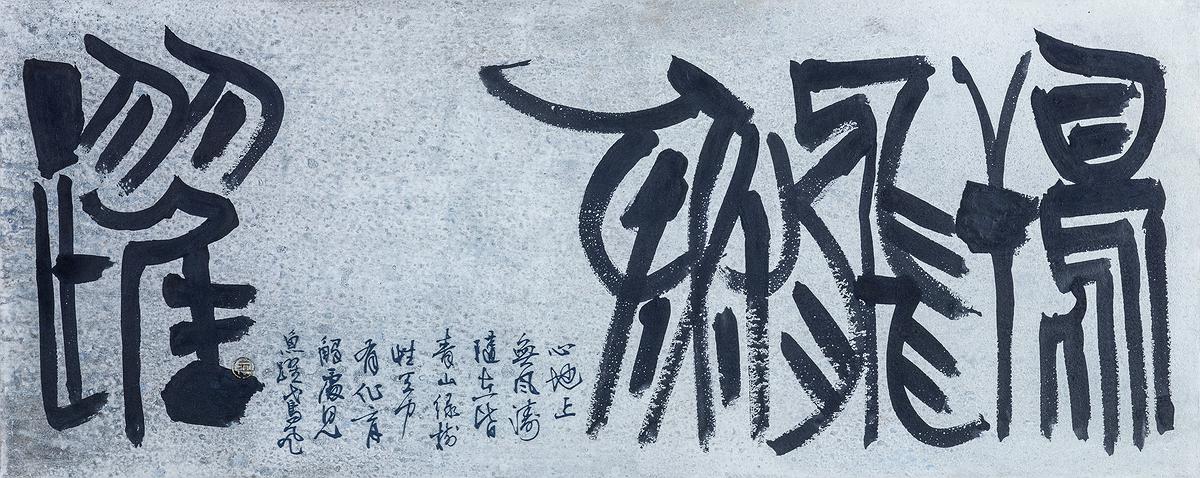 鳶飛魚躍
心地上
無風濤
隨在皆
青山綠樹
性天中
有化育
觸處見
魚躍鳶飛